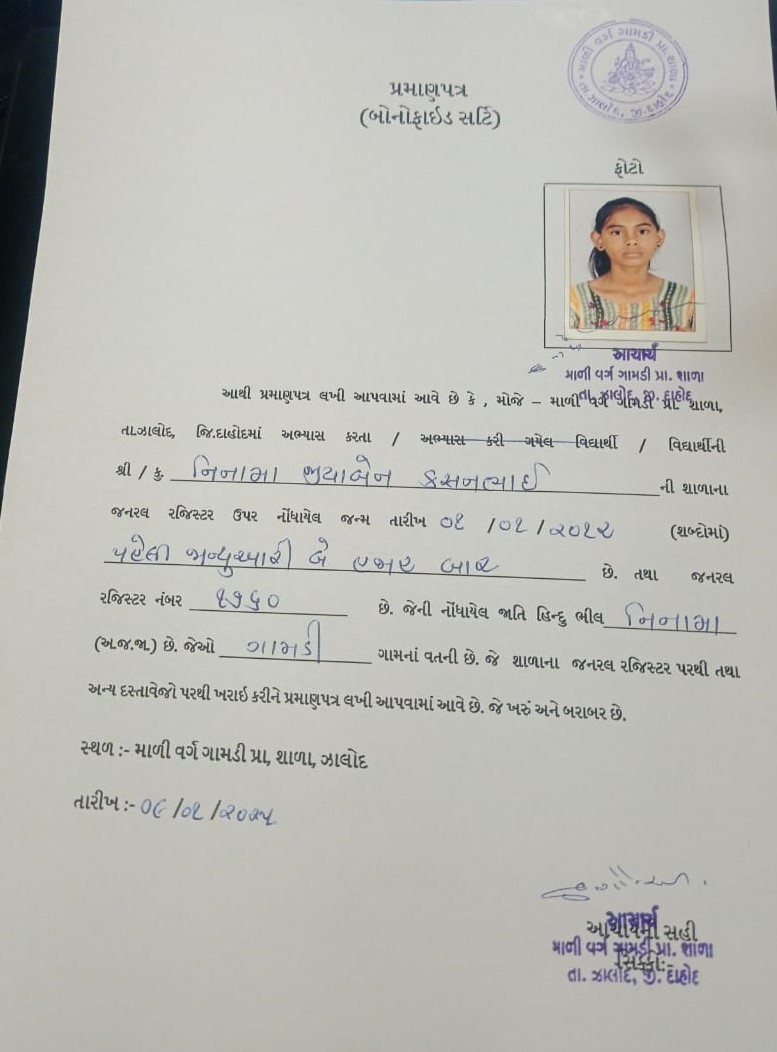 માળી વર્ગ ગામડી પ્રા. શાળા
તા. ઝાલોદ, જી. દાહોદ
પ્રમાણપત્ર
(બોનોફાઇડ સર્ટિ)
ફોટો
આચાર્ય
માળી વર્ગ ગામડી પ્રા. શાળા
તા. ઝાલોદ, જી. દાહોદ
આથી પ્રમાણપત્ર લખી આપવામાં આવે છે કે , મોજે – માળી વર્ગ ગામડી પ્રા. શાળા,
તા.ઝાલોદ, જિ.દાહોદમાં અભ્યાસ કરતા / અભ્યાસ કરી ગયેલ વિદ્યાર્થી / વિદ્યાર્થીની
શ્રી / કુ. નિનામા જીયાબેન કસનભાઈ ની શાળાના
જનરલ રજિસ્ટર ઉપર નોંધાયેલ જન્મ તારીખ ૦૧ /૦૧ / ૨૦૧૨ (શબ્દોમાં)
પહેલી જાન્યુઆરી બે હજાર બાર છે. તથા જનરલ
રજિસ્ટર નંબર ૧૭૬૦ છે. જેની નોંધાયેલ જાતિ હિન્દુ ભીલ નિનામા
(અ.જ.જા.) છે. જેઓ ગામડી ગામનાં વતની છે. જે શાળાના જનરલ રજિસ્ટર પરથી તથા
અન્ય દસ્તાવેજો પરથી ખરાઇ કરીને પ્રમાણપત્ર લખી આપવામાં આવે છે. જે ખરું અને બરાબર છે.
સ્થળ :- માળી વર્ગ ગામડી પ્રા, શાળા, ઝાલોદ
તારીખ :- ૦૯ /૦૧ /૨૦૨૫
આચાર્ય
આચાર્યની સહી
માળી વર્ગ ગામડી પ્રા. શાળા
સિક્કો:-
તા. ઝાલોદ, જી. દાહોદ